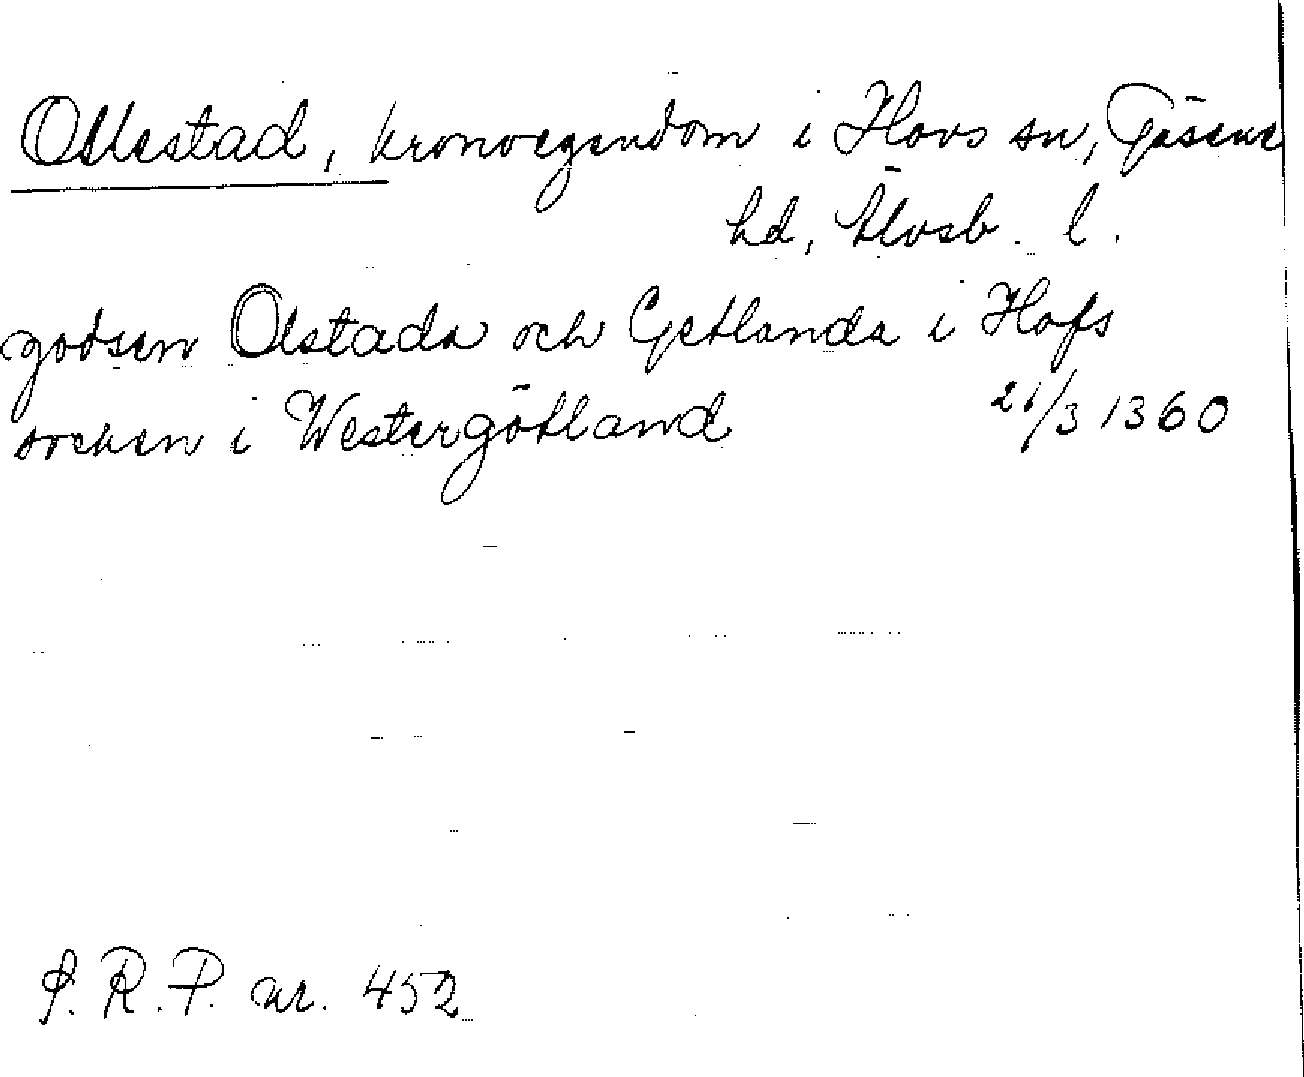 Ollestad, kronoegendom i Hovs sn, Gäsene
hd, Älvsb. l.
godsen Olstada och Getlanda i Hofs
socken i Westergötland 21/3 1360
S.R.P. nr. 452